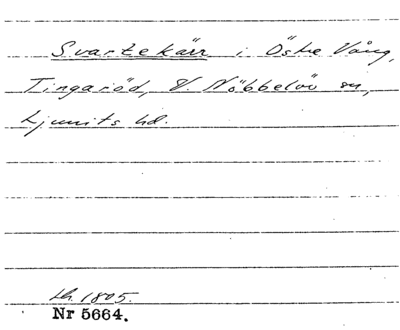 Svartekärr i Östre Vång,
Tingaröd, V. Nöbbelöv sn,
Ljunits hd.
Lh. 1805.
Nr 5664.